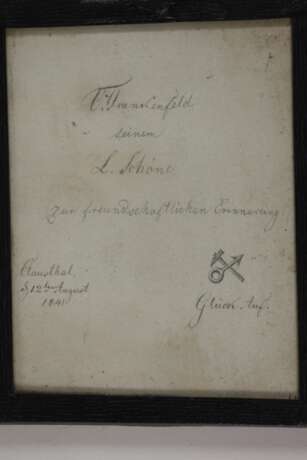 V. Frankenfeld
seinem
L. Schöne
zur freundschaftlichen Erinnerung
Clausthal
d. 12ten August
1841
Glück Auf.